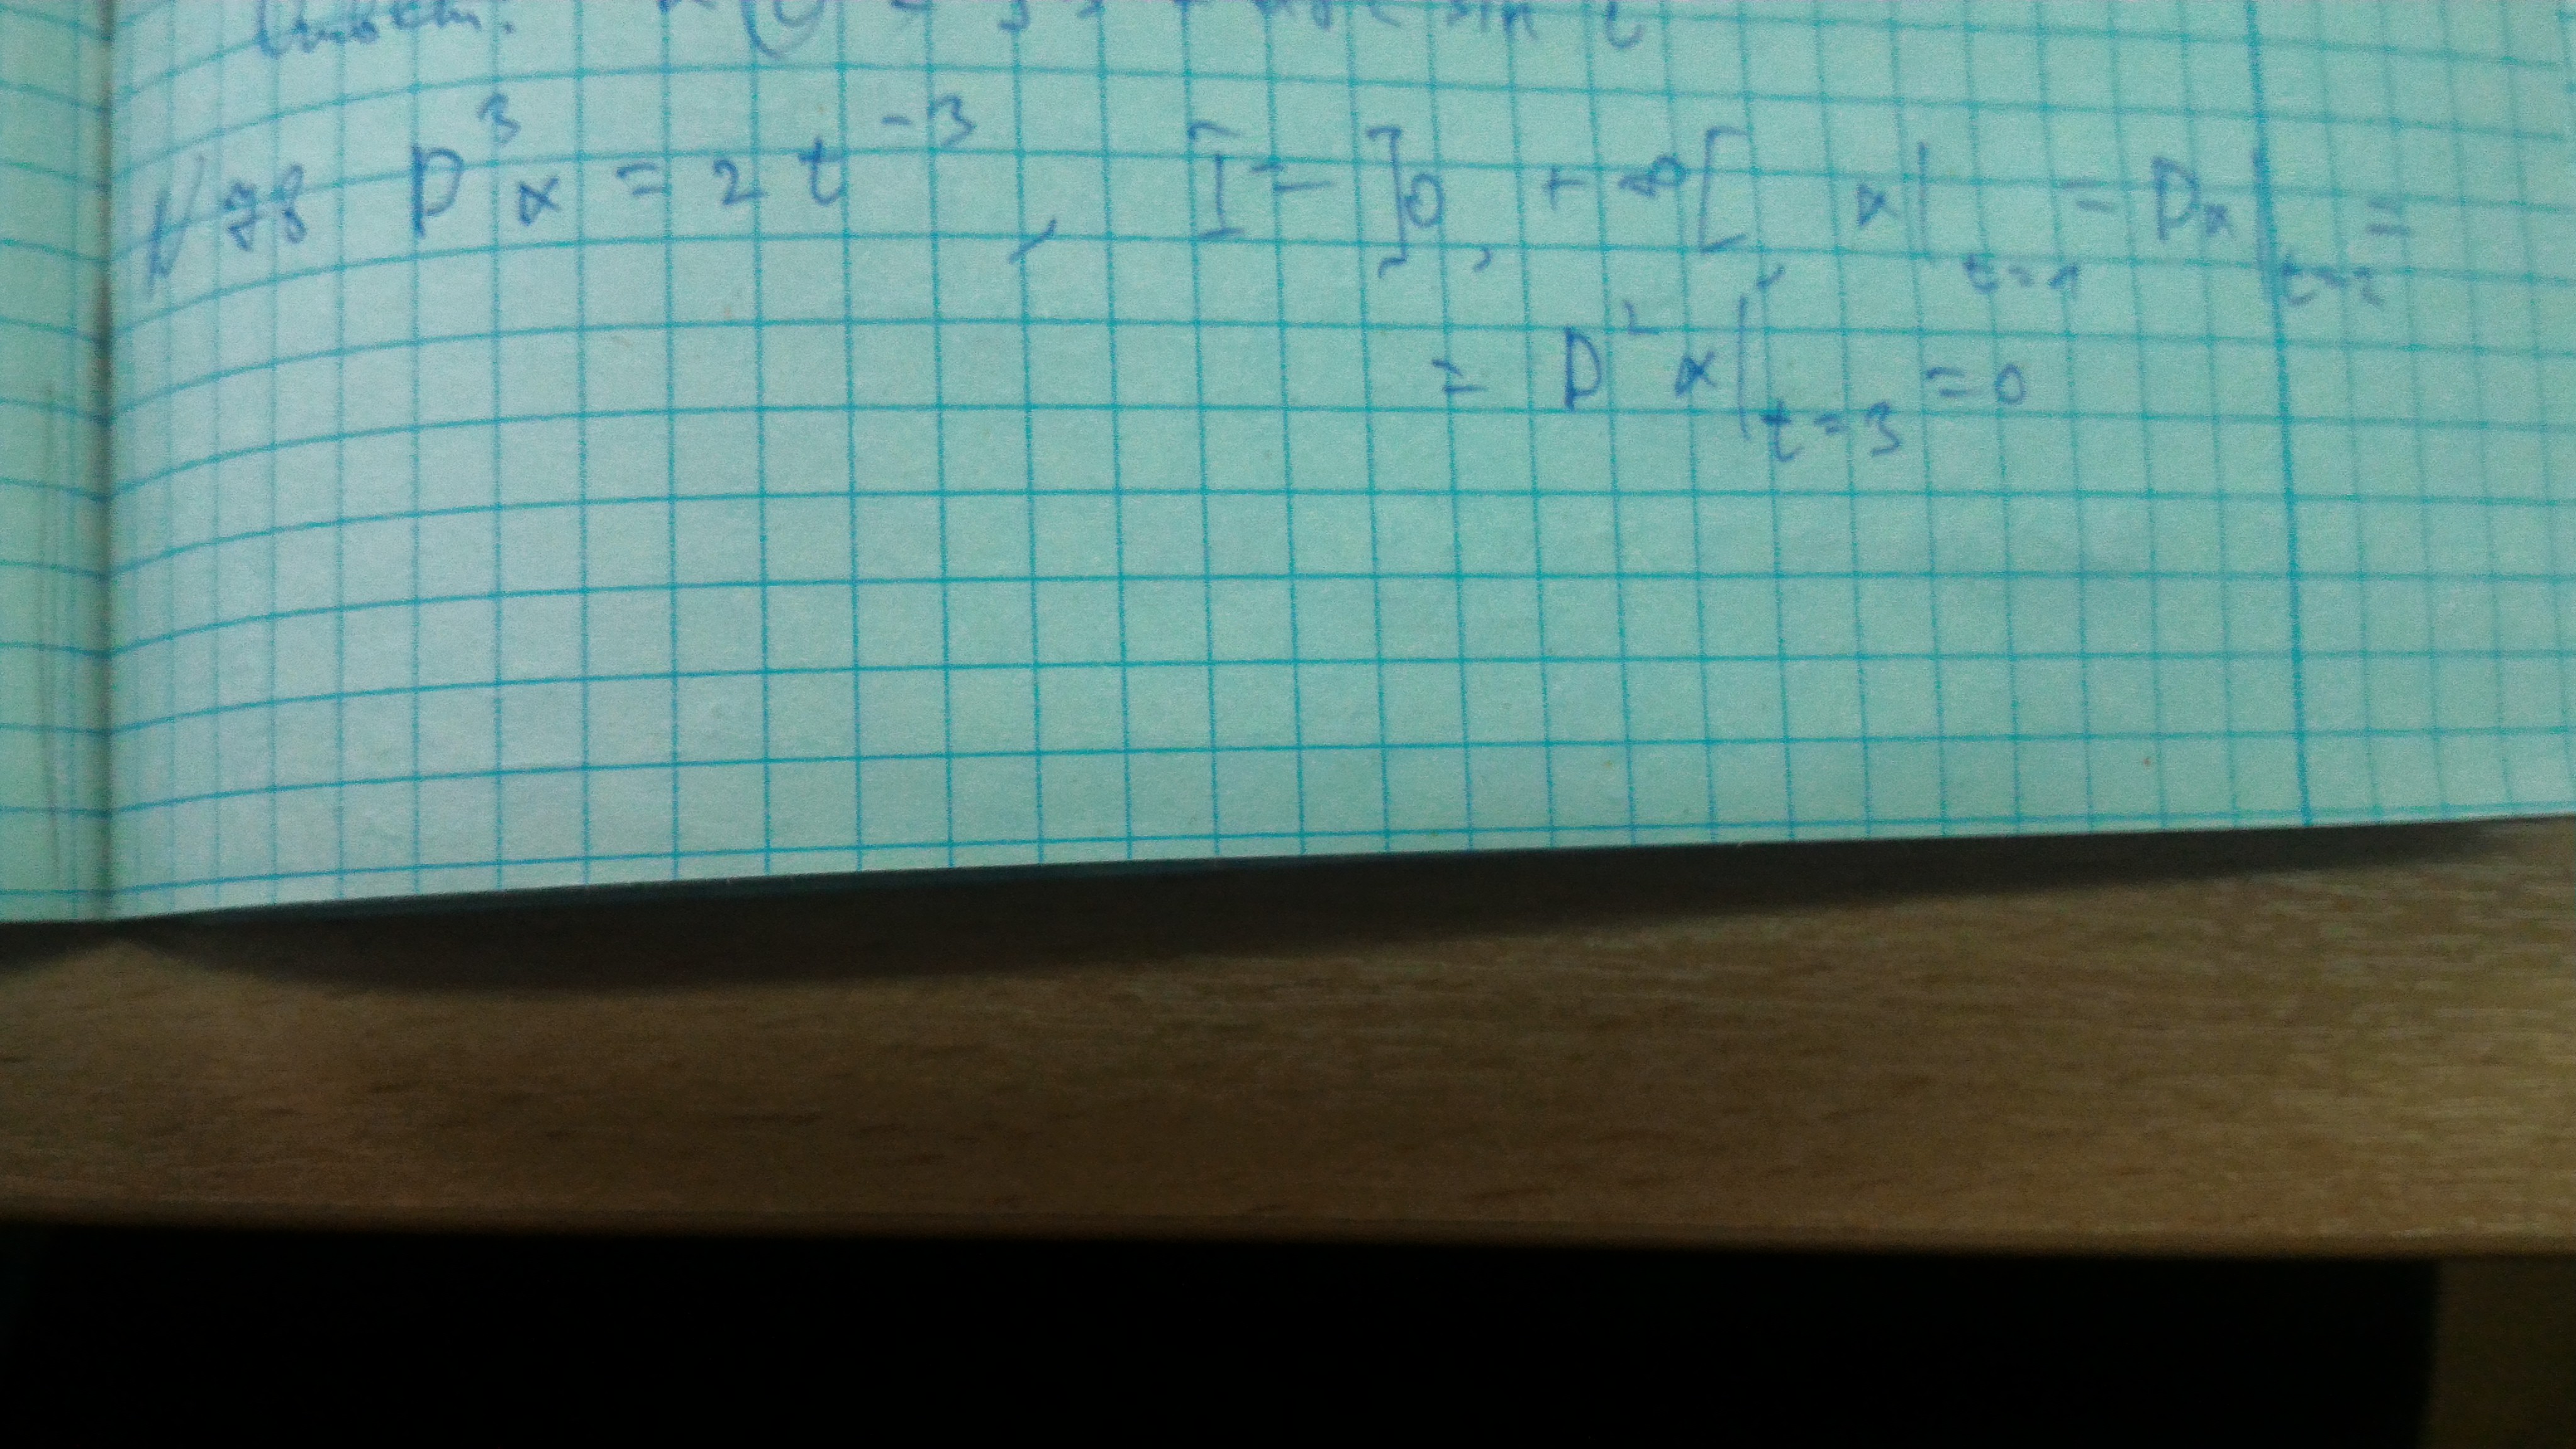 sin t
N 78 D³x = 2t⁻³, I = ]0, +∞[, x|t=1 = Dx|t=2 =
= D²x|t=3 = 0